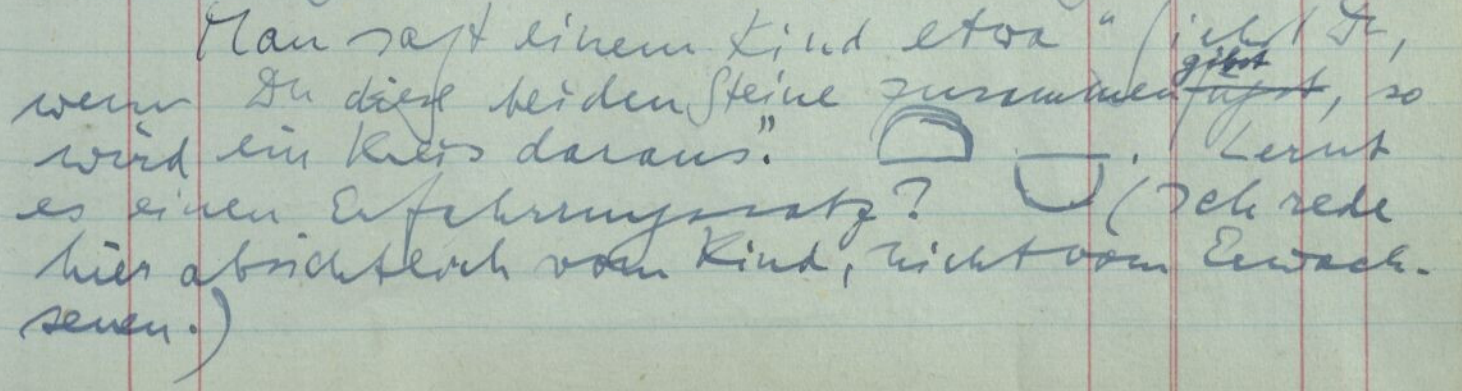 Man sagt einem Kind etwa "siehst Du,
wenn Du diese beiden Steine zusammenfügst gibst, so
wird ein Kreis daraus." Lernt
es einen Erfahrungssatz? (Ich rede
hier absichtlich vom Kind, nicht vom Erwach-
senen.)